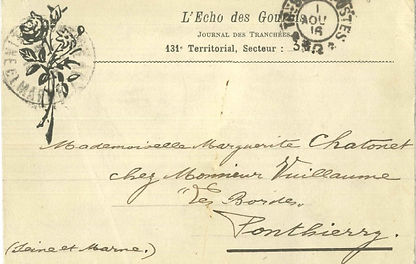 L'Echo des
JOURNAL DES TRANCHÉES
131e Territorial, Secteur :
1
AOU
16
Mademoiselle Marguerite Chatonet
chez Monsieur Vuillaume
"Les Bordes"
Ponthierry.
(Seine et Marne.)